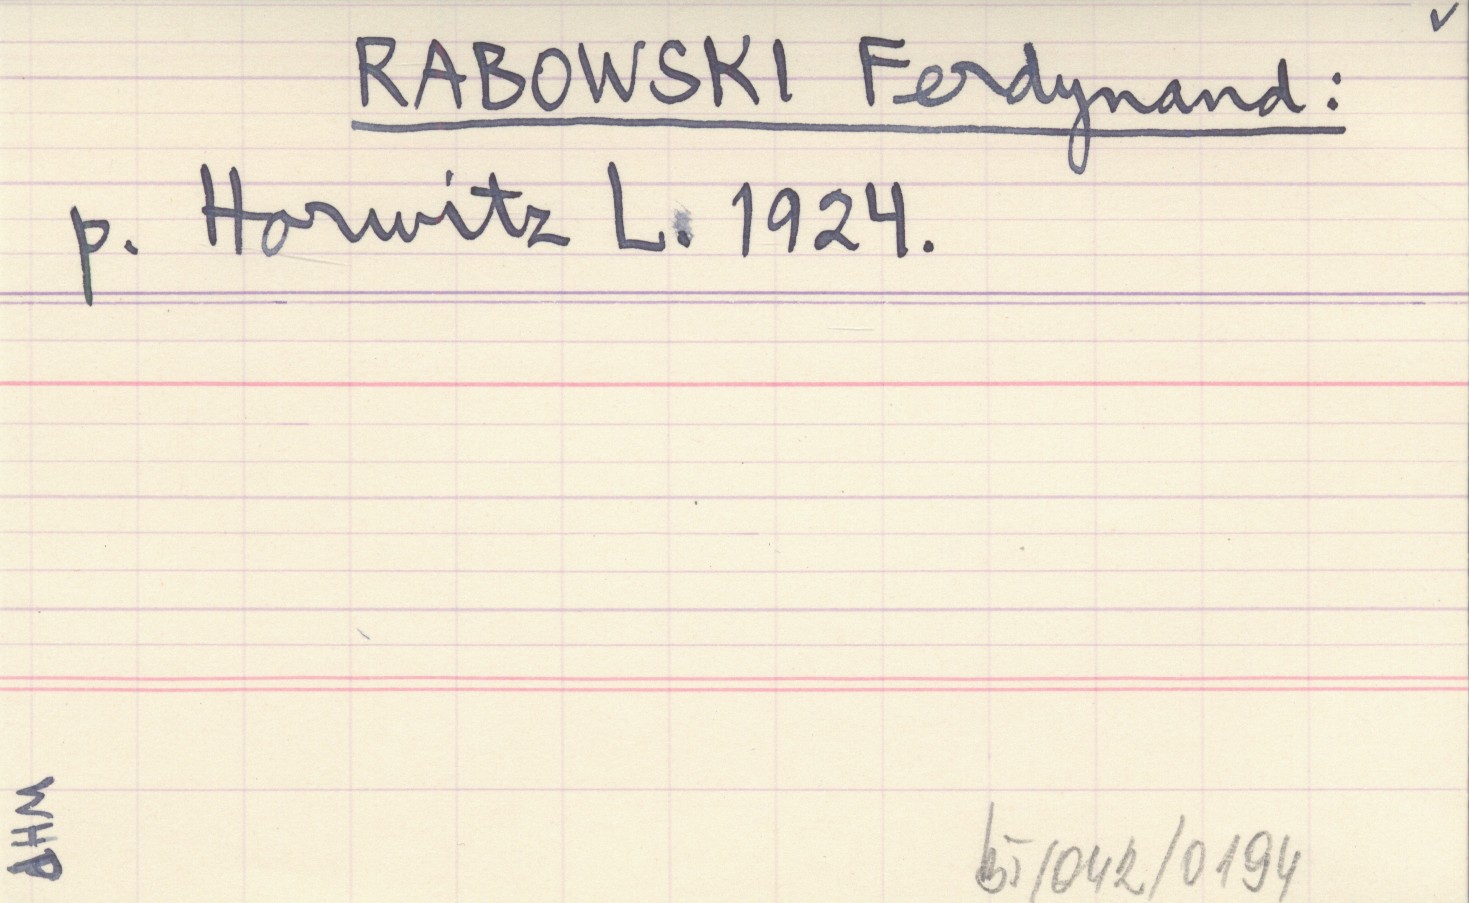 ✓
RABOWSKI Ferdynand:
p. Horwitz L. 1924.
AHM
bj/042/0194